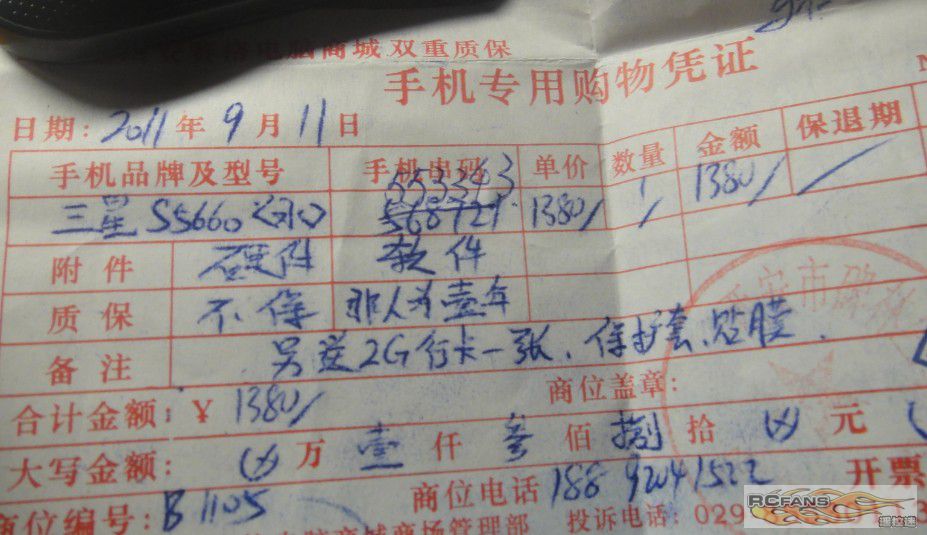 电脑商城双重质保
手机专用购物凭证
日期: 2011 年 9 月 11 日
手机品牌及型号 手机串码 单价 数量 金额 保退期
三星 S5660 553343 568721 1380/ 1/ 1380/ /
附件 硬件 软件
质保 不保 非人为壹年
备注 另送2G行卡一张、保护套、贴膜.
合计金额: ¥ 1380/ 商位盖章:
大写金额: 万 壹 仟 叁 佰 捌 拾 元
商位编号: B1105 商位电话 188 92041522 开票
商城商场管理部 投诉电话: 029
安市碑
RCFANS
遥控迷